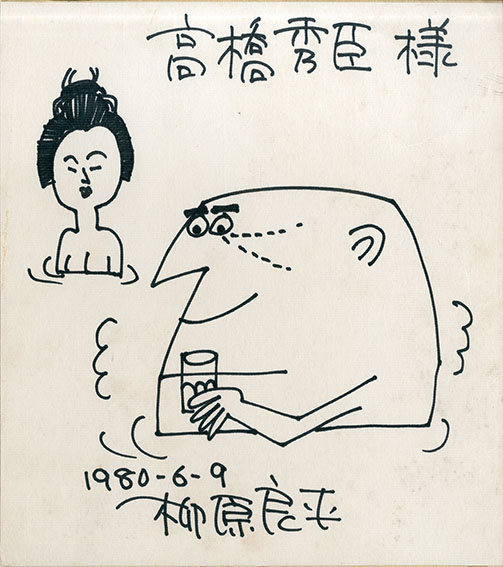 高橋秀臣 様
1980-6-9
柳原良平